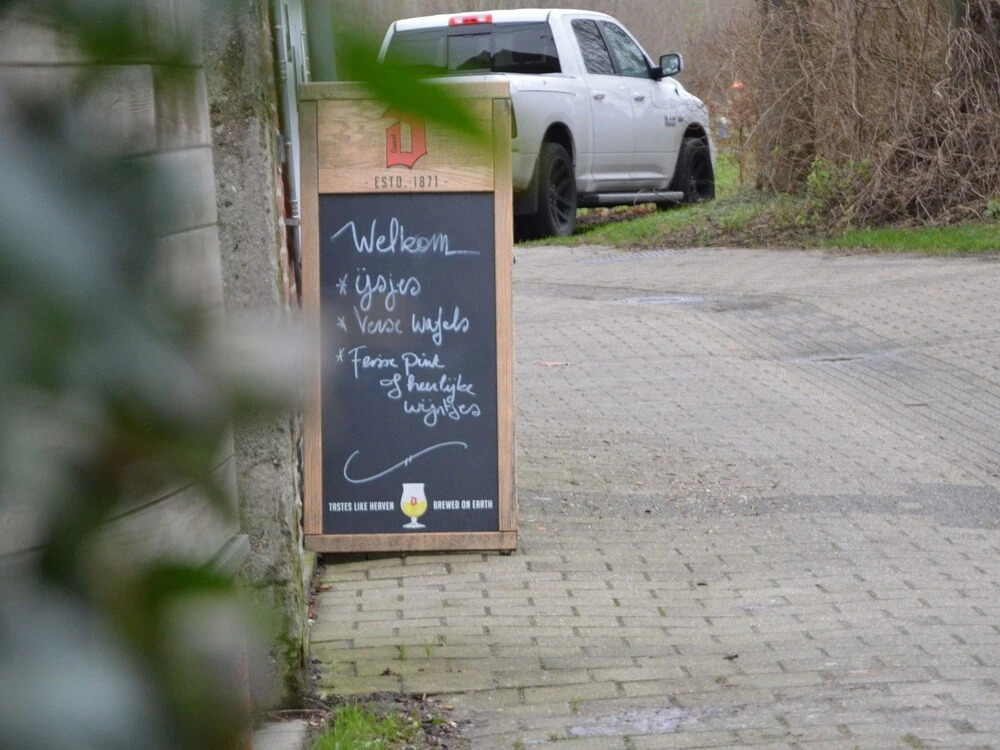 Duvel
- ESTD. 1871 -
Welkom
* ijsjes
* Verse Wafels
* Frisse pint
of heerlijke
wijntjes
TASTES LIKE HEAVEN BREWED ON EARTH